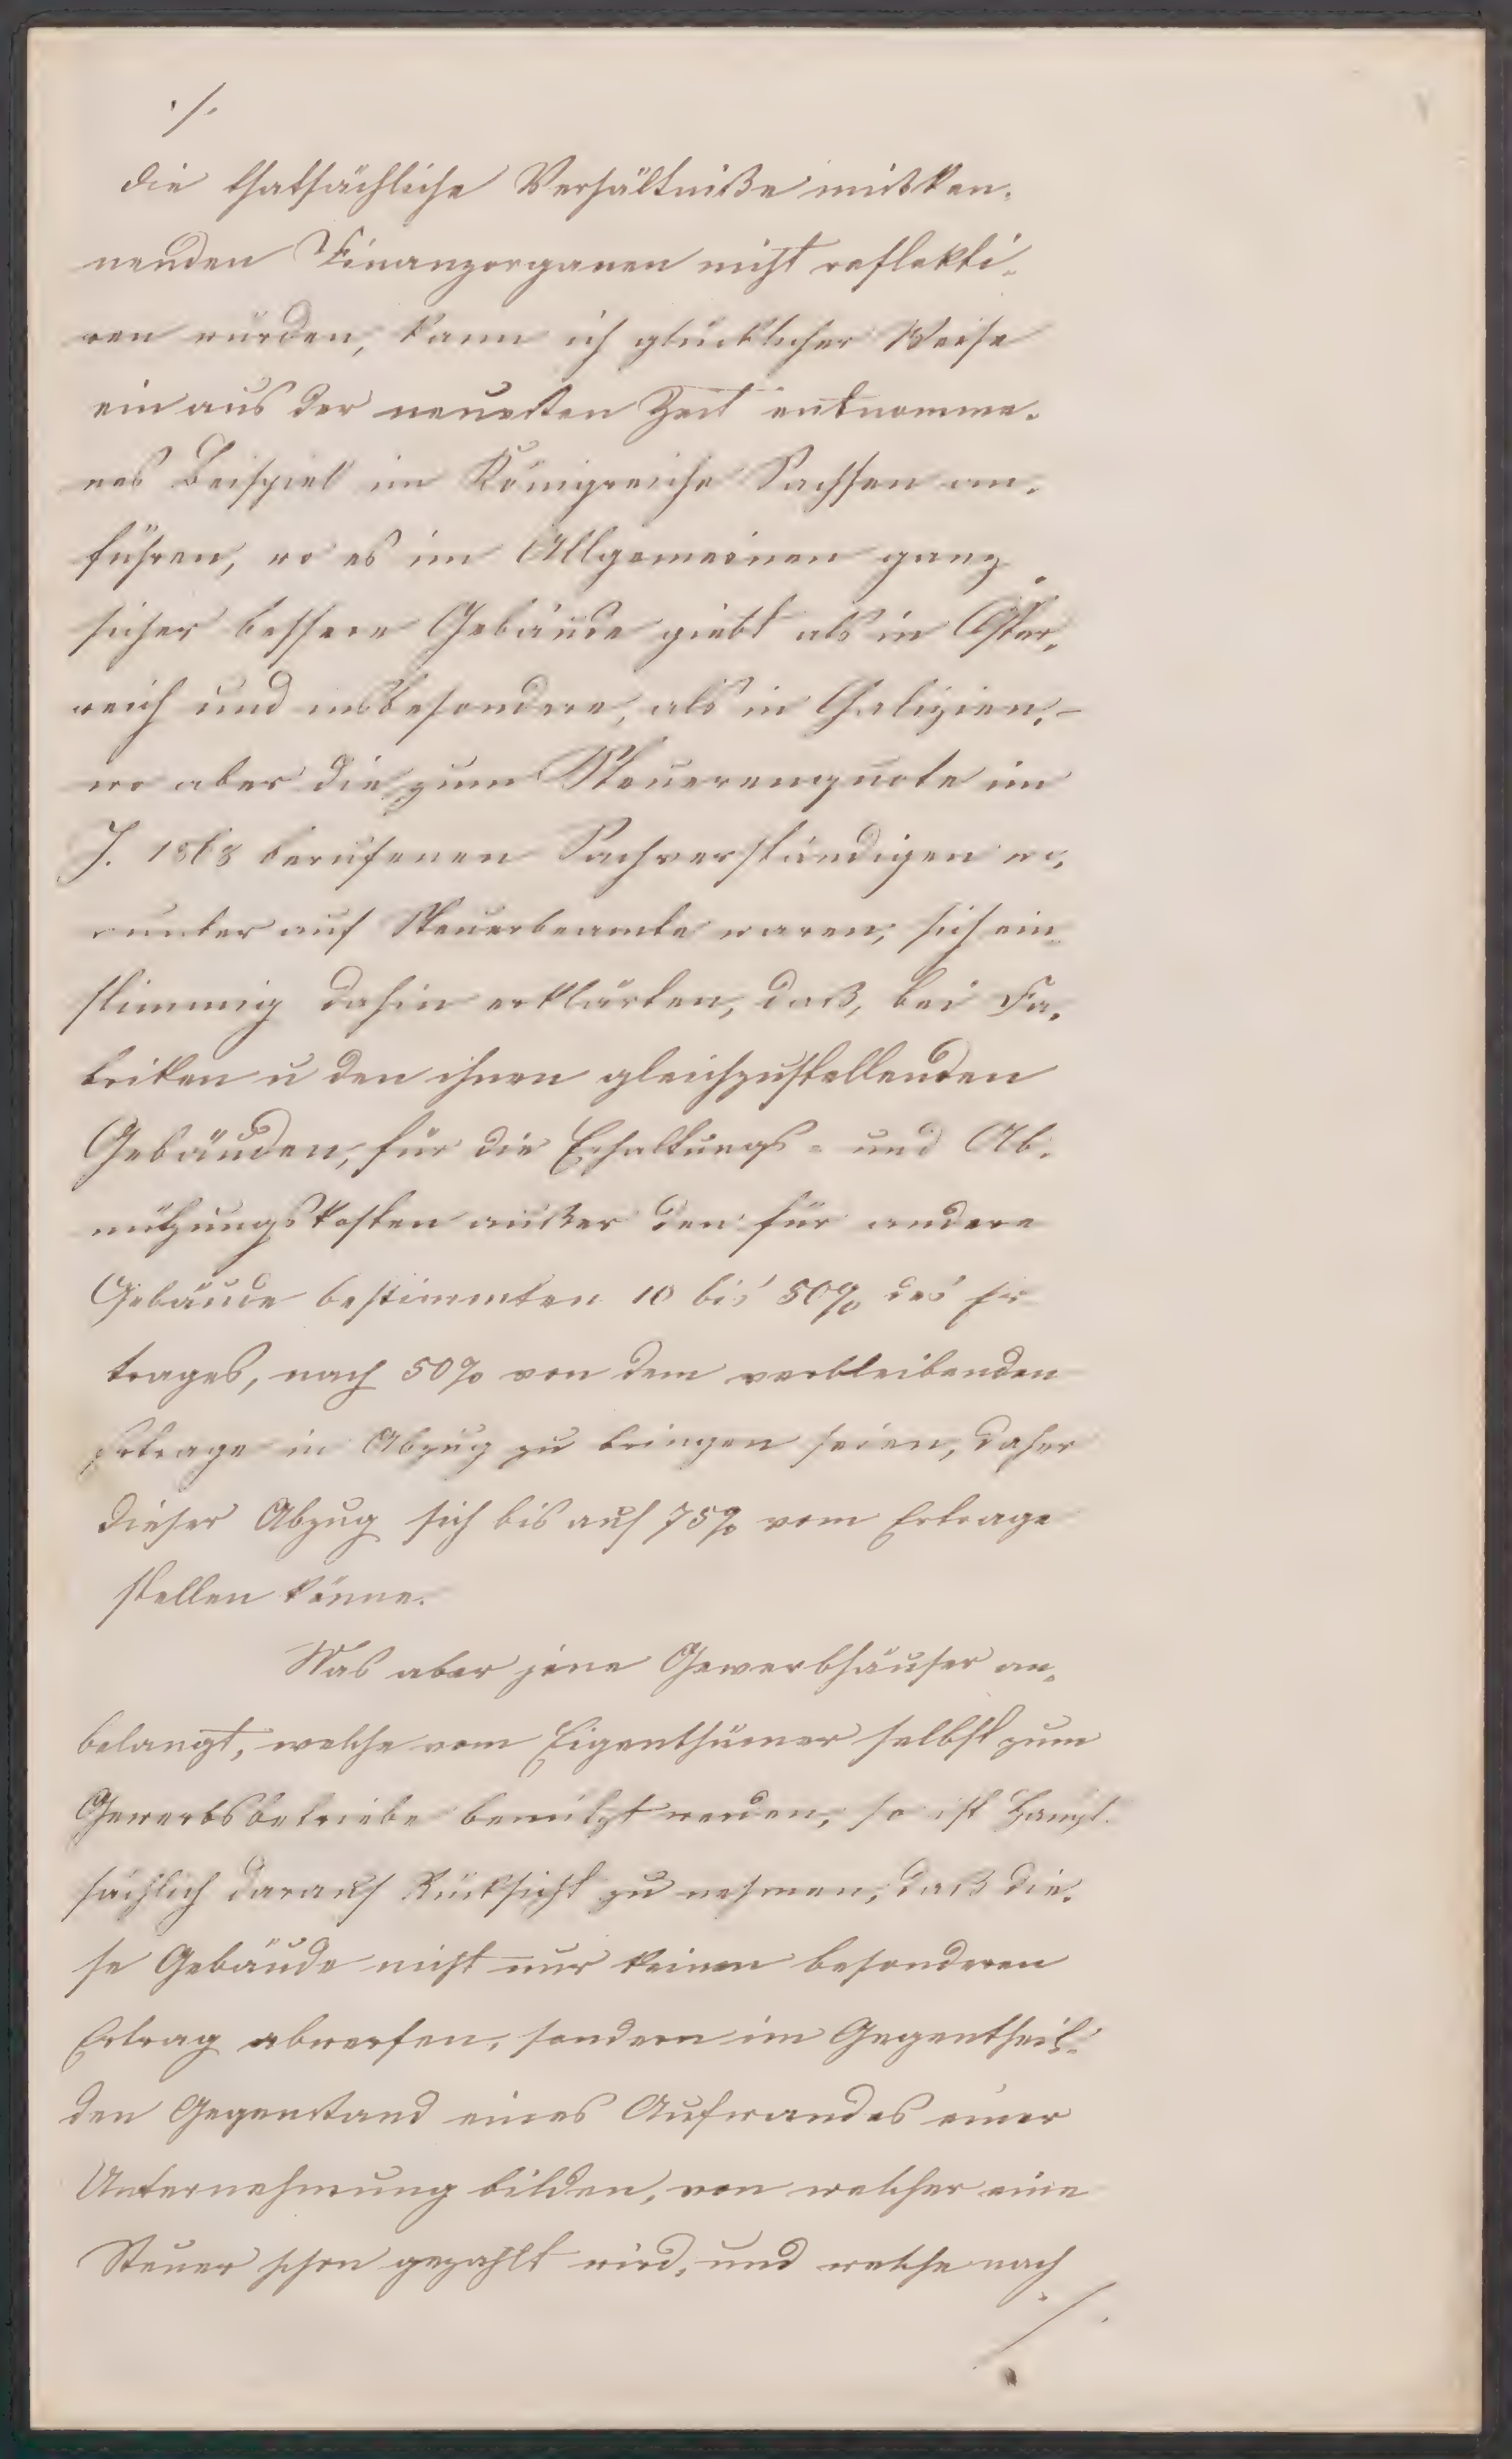 ./.
die thatsächliche Verhältniße mißken-
nenden Finanzorganen nicht reflekti-
ren würden, kann ich glücklicher Weise
ein aus der neuesten Zeit entnomme-
nes Beispiel im Königreiche Sachsen an-
führen, wo es im Allgemeinen ganz
sicher bessere Gebäude giebt als in Öster-
reich und insbesondere, als in Galizien, -
wo aber die zum Steuerenquete im
J. 1868 berufenen Sachverständigen wo-
runter auch Steuerbeamte waren, sich ein
stimmig dahin erklärten, daß, bei Fa-
briken u den ihnen gleichzustellenden
Gebäuden, für die Erhaltungs- und Ab-
nützungskosten außer den für andere
Gebäude bestimmten 10 bis 50% des Er
trages, noch 50% von dem verbleibenden
Ertrage in Abzug zu bringen seien, daher
dieser Abzug sich bis auf 75% vom Ertrage
stellen könne.
Was aber jene Gewerbhäuser an-
belangt, welche vom Eigenthümer selbst zum
Gewerbsbetriebe benützt werden, so ist haupt-
sächlich darauf Rücksicht zu nehmen, daß die-
se Gebäude nicht nur keinen besonderen
Ertrag abwerfen, sondern im Gegentheil
den Gegenstand eines Aufwandes einer
Unternehmung bilden, von welcher eine
Steuer schon gezahlt wird, und welche nach
./.